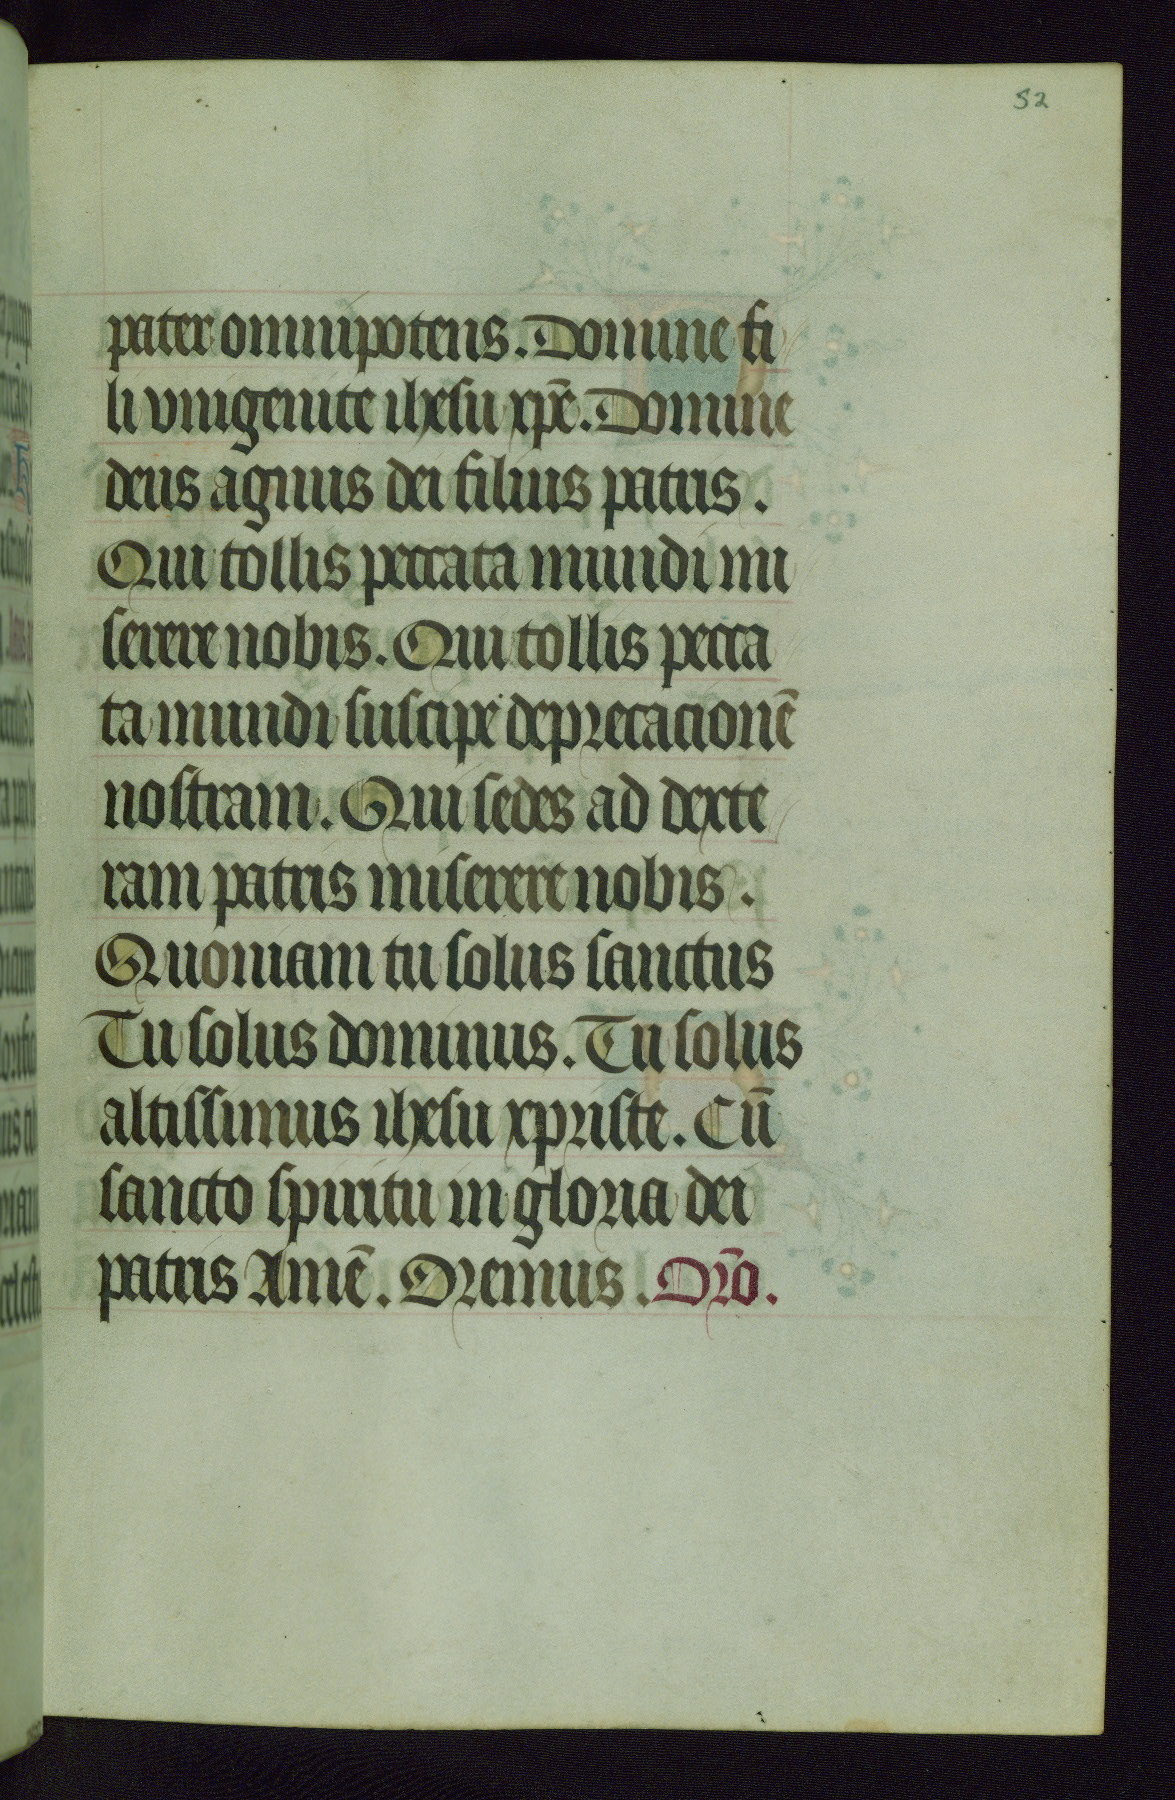 52
pater omnipotens. Domine fi
li vnigenite ihesu xp̄e. Domine
deus agnus dei filius patris.
Qui tollis peccata mundi mi
serere nobis. Qui tollis pecca
ta mundi suscipe deprecacionē
nostram. Qui sedes ad dexte
ram patris miserere nobis.
Quoniam tu solus sanctus
Tu solus dominus. Tu solus
altissimus ihesu xpriste. Cū
sancto spiritu in gloria dei
patris Amē. Oremus. Or̄o.